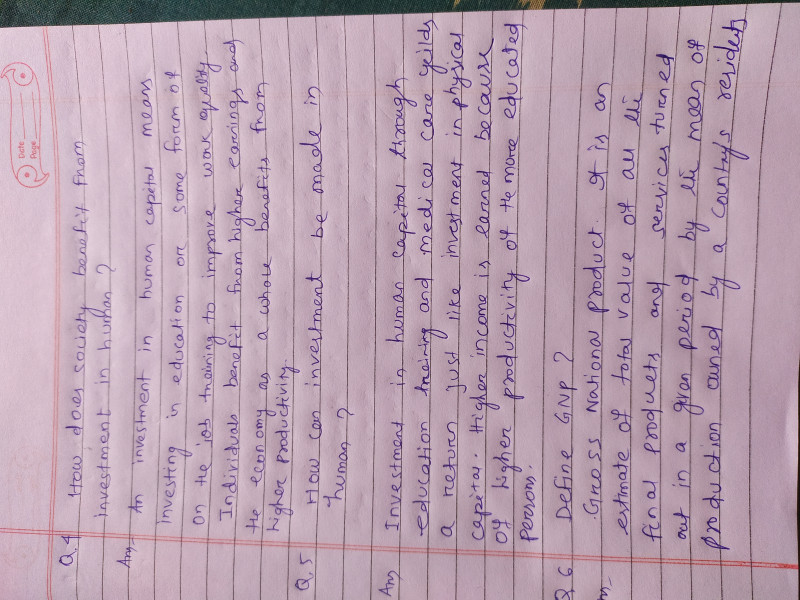 Date
Page
Q.4 How does society benefit from
investment in human ?
Ans- An investment in human capital means
investing in education or some form of
on the job training to improve work quality.
Individuals benefit from higher earnings and
the economy as a whole benefits from
higher productivity.
Q.5 How can investment be made in
human ?
Ans Investment in human capital through
education training and medical care yeilds
a return just like investment in physical
capital. Higher income is earned because
of higher productivity of the more educated
persons.
Q.6 Define GNP ?
Gross National product. It is an
estmate of total value of all the
final products and services turned
out in a given period by the mean of
production owned by a country's residents